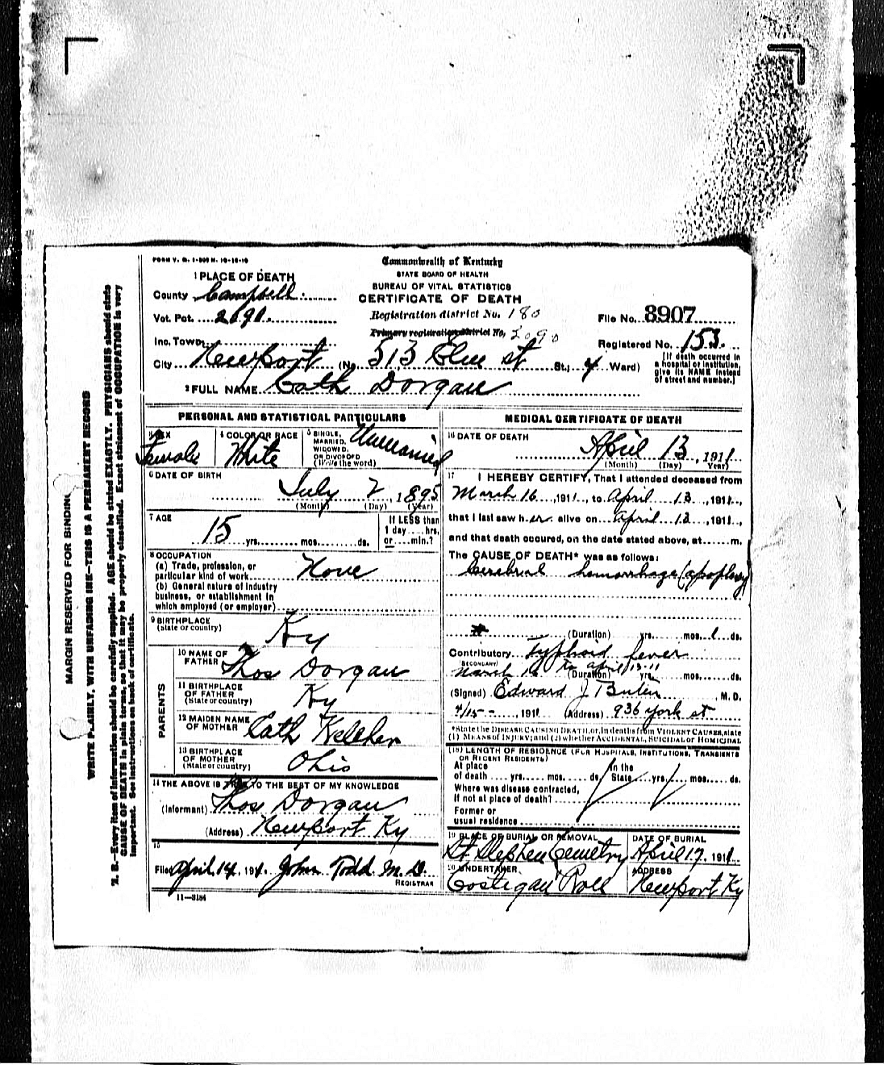 FORM V. S. 1-
1 PLACE OF DEATH
County Campbell
Vot. Pct. 2090
Inc. Town
City Newport (No. 513 Elm st St.; 4 Ward)
Commonwealth of Kentucky
STATE BOARD OF HEALTH
BUREAU OF VITAL STATISTICS
CERTIFICATE OF DEATH
Registration district No. 180
Primary registration district No. 2090
File No. 8907
Registered No. 153
[If death occurred in a hospital or institution, give its NAME instead of street and number.]
2 FULL NAME Cath Dorgan
PERSONAL AND STATISTICAL PARTICULARS
3 SEX
Female
4 COLOR OR RACE
White
5 SINGLE, MARRIED, WIDOWED, OR DIVORCED
(Write the word)
Unmarried
6 DATE OF BIRTH
July 2, 1895
(Month) (Day) (Year)
7 AGE
15 yrs. mos. ds.
If LESS than 1 day hrs. or min.?
8 OCCUPATION
(a) Trade, profession, or particular kind of work None
(b) General nature of industry business, or establishment in which employed (or employer)
9 BIRTHPLACE
(State or country) Ky
PARENTS
10 NAME OF FATHER Thos Dorgan
11 BIRTHPLACE OF FATHER
(State or country) Ky
12 MAIDEN NAME OF MOTHER Cath Kelcher
13 BIRTHPLACE OF MOTHER
(State or country) Ohio
14 THE ABOVE IS TRUE TO THE BEST OF MY KNOWLEDGE
(Informant) Thos Dorgan
(Address) Newport Ky
15
Filed April 14, 191. John Todd M.D.
REGISTRAR
11-3184
MEDICAL CERTIFICATE OF DEATH
16 DATE OF DEATH
April 13, 1911
(Month) (Day) Year)
17 I HEREBY CERTIFY, That I attended deceased from
March 16, 1911, to April 13, 1911,
that I last saw her alive on April 13, 1911,
and that death occured, on the date stated above, at m.
The CAUSE OF DEATH* was as follows:
Cerebral hemorrhage (apoplexy)
(Duration) yrs. mos. 1 ds.
Contributory Typhoid fever
SECONDARY
March 16 to April 13-11
(Duration) yrs. mos. ds.
(Signed) Edward J , M. D.
4/15-, 1911 (Address) 936 York st
*State the DISEASE CAUSING DEATH, or, in deaths from VIOLENT CAUSES, state (1) MEANS OF INJURY; and (2) whether ACCIDENTAL, SUICIDAL or HOMICIDAL
(18) LENGTH OF RESIDENCE (FOR HOSPITALS, INSTITUTIONS, TRANSIENTS OR RECENT RESIDENTS)
At place of death yrs. mos. ds. In the State yrs. mos. ds.
Where was disease contracted, if not at place of death?
Former or usual residence
19 PLACE OF BURIAL OR REMOVAL
St Stephen Cemetry
DATE OF BURIAL
April 17, 1911
20 UNDERTAKER
Costigan Roll
ADDRESS
Newport Ky
MARGIN RESERVED FOR BINDING
WRITE PLAINLY, WITH UNFADING INK—THIS IS A PERMANENT RECORD
N. B.—Every item of information should be carefully supplied. AGE should be stated EXACTLY. PHYSICIANS should state
CAUSE OF DEATH in plain terms, so that it may be properly classified. Exact statement of OCCUPATION is very
important. See instructions on back of certificate.